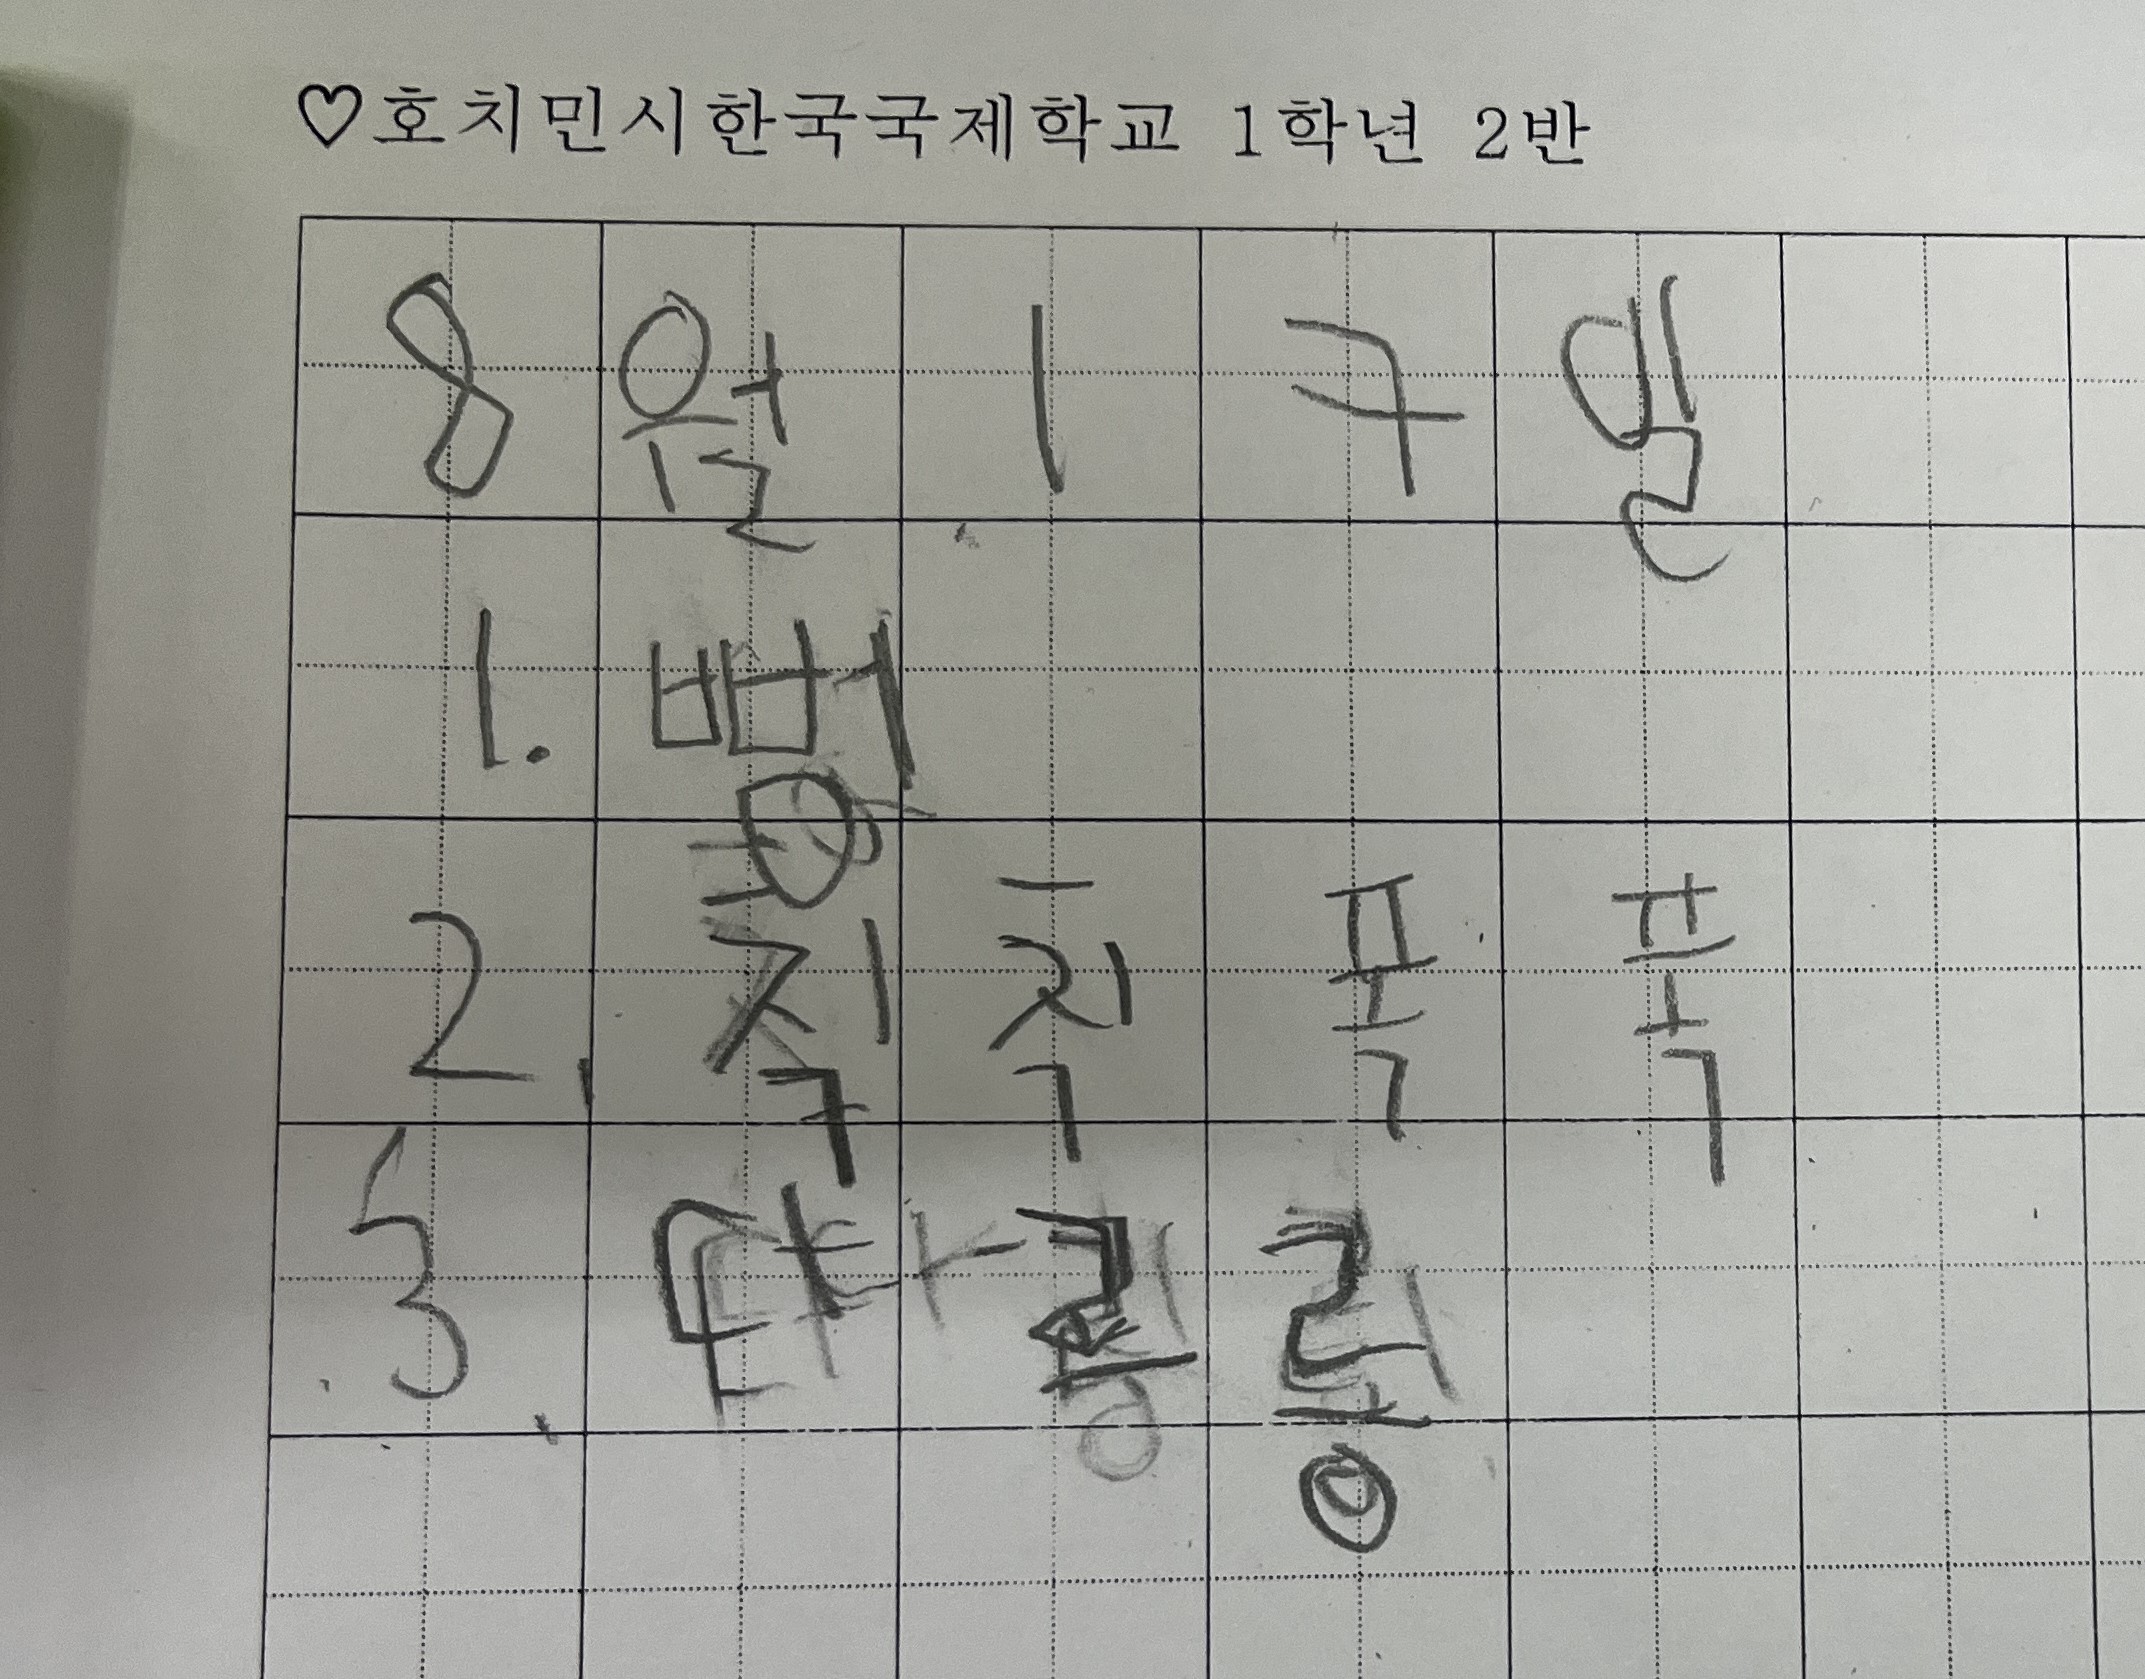 ♡호치민시한국국제학교 1학년 2반
8월 17일
1. 뻥
2. 칙칙폭폭
3. 따르릉